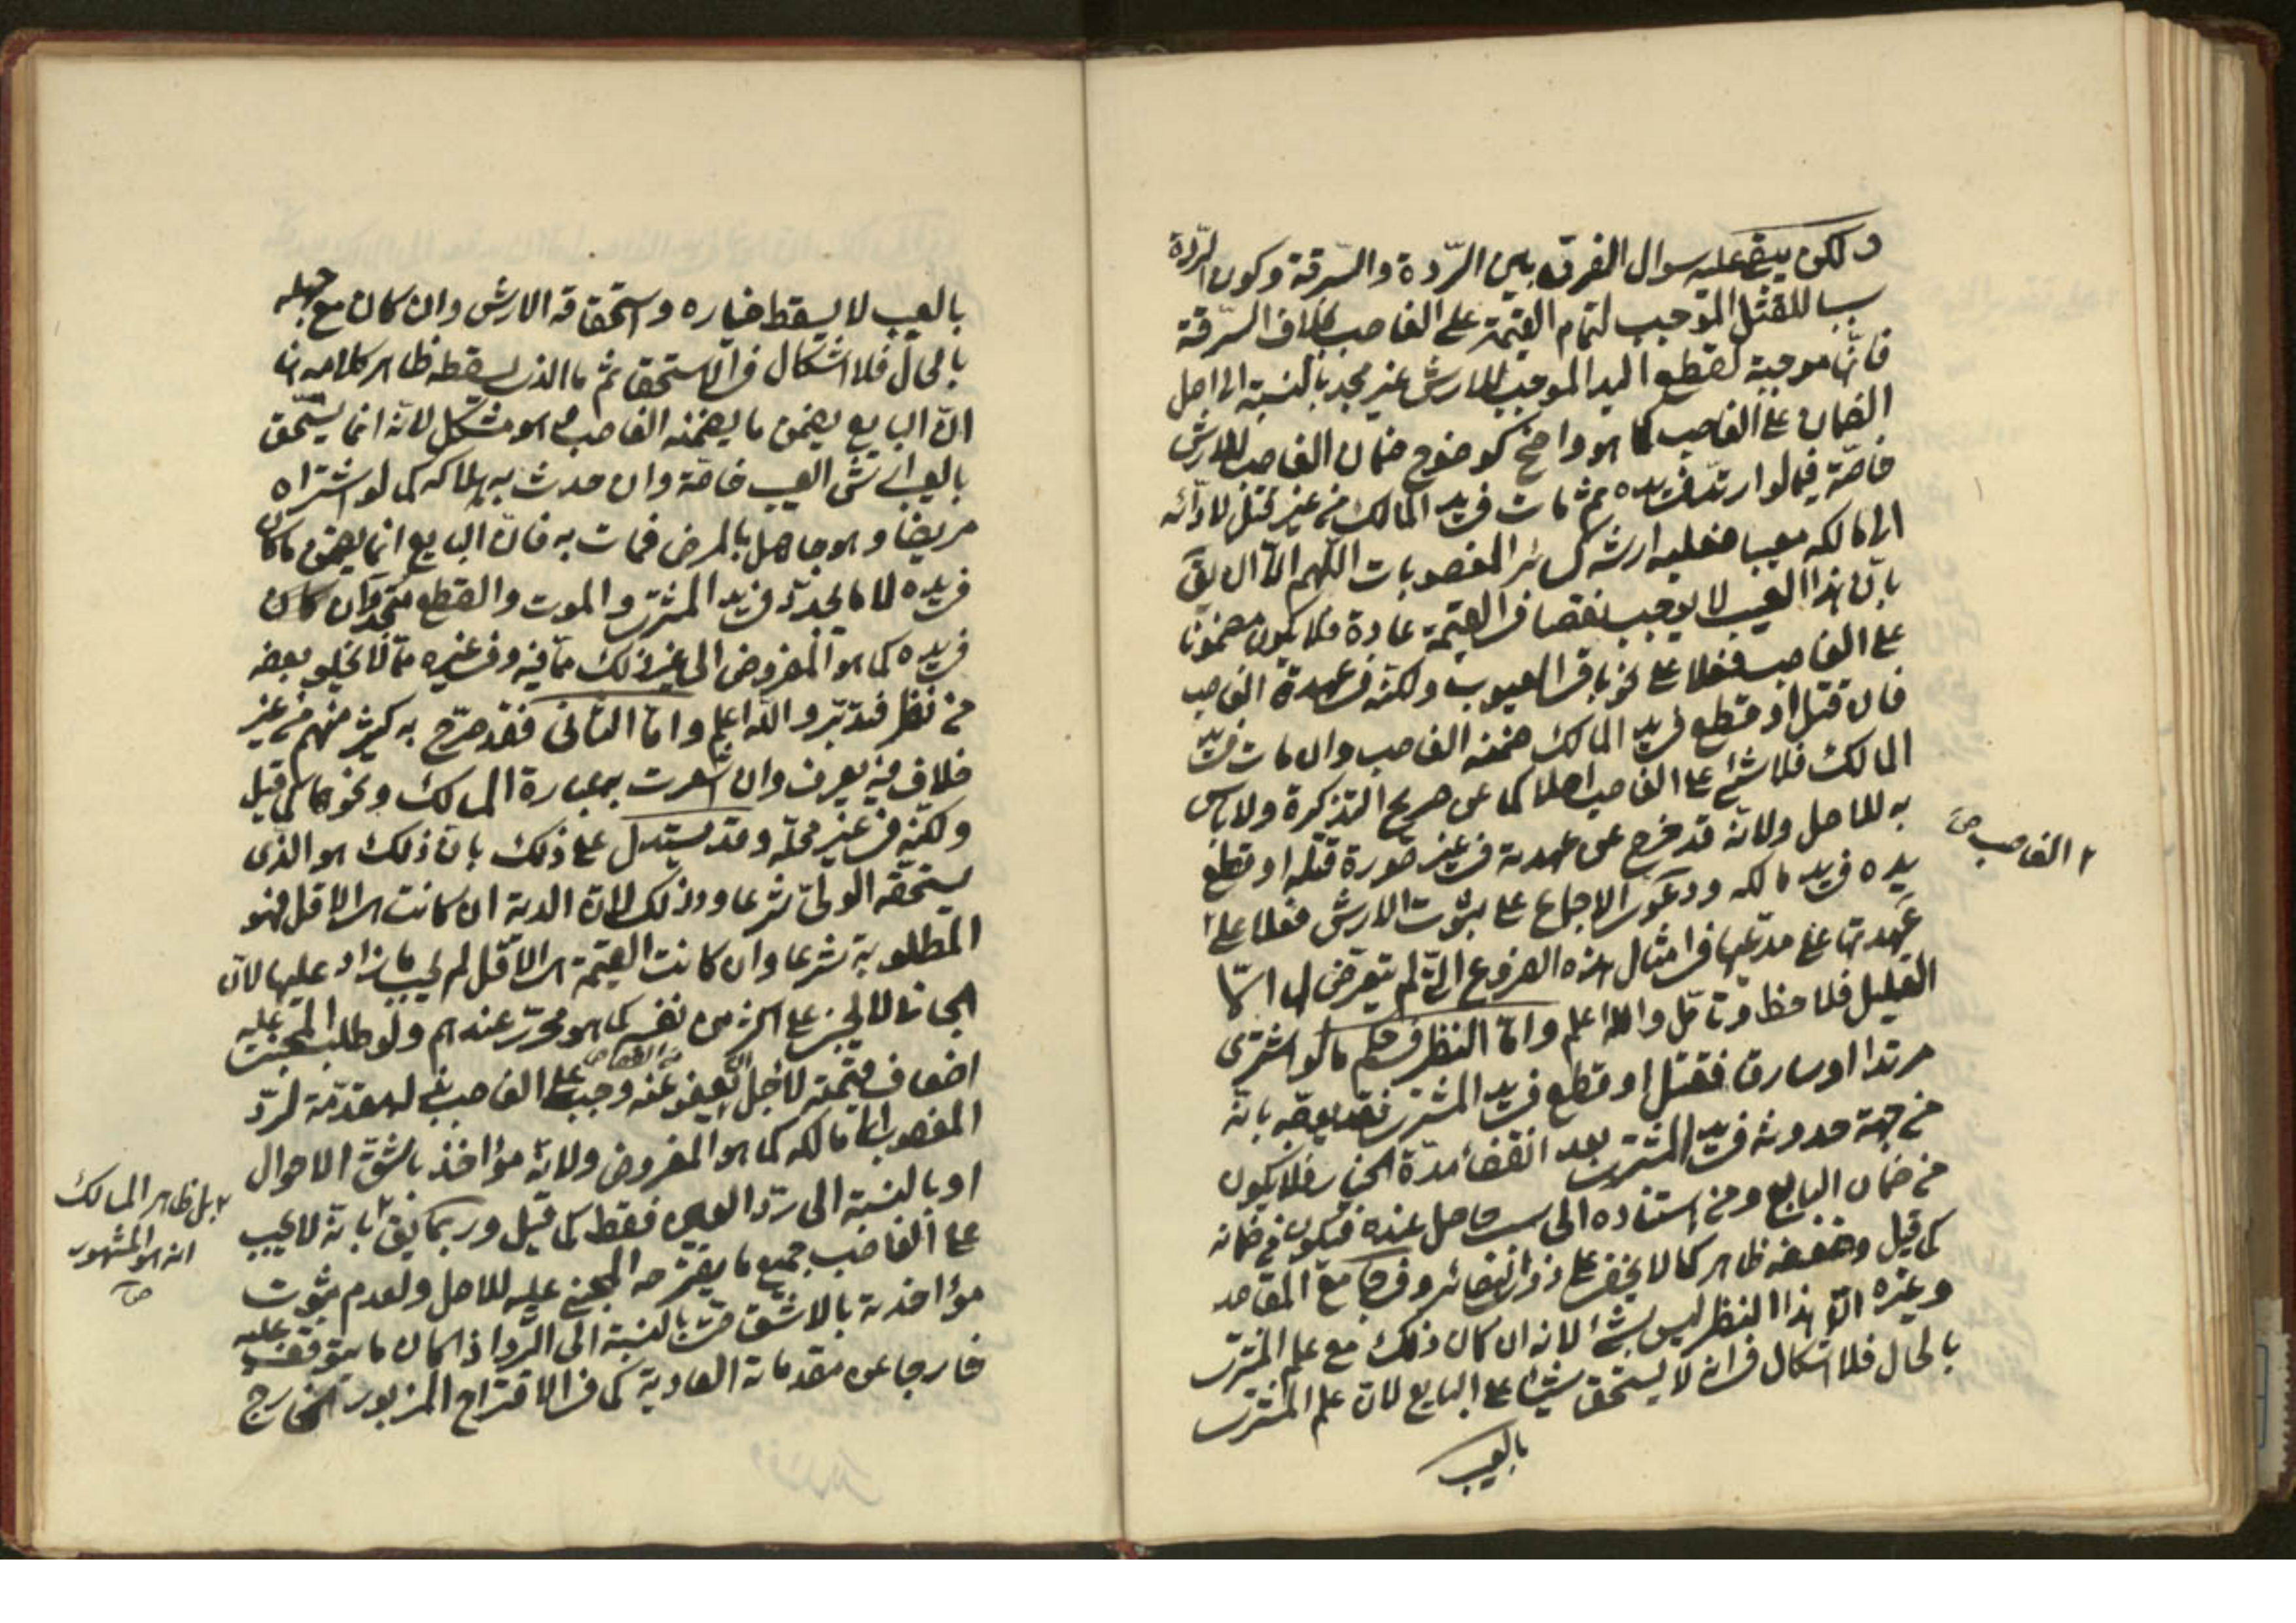 ولكن يبقى عليه سؤال الفرق بين الردة والسرقة وكون الردة
سببا للقتل الموجب لتمام القيمة على الغاصب بخلاف السرقة
فانها موجبة لقطع اليد الموجب للارش غير مجد بالنسبة الى اصل
الضمان على الغاصب كما هو واضح كوضوح ضمان الغاصب للارش
خاصة فيما لو ارتد في يده ثم مات في يد المالك من غير قتل لاداّئه
الى مالكه معيبا فعليه ارشه كسائر المغصوبات اللهم الا ان يق
بان هذا العيب لا يوجب نقصا في القيمة عادة فلا يكون مضمونا
على الغاصب فعلا على نحو باقي العيوب ولكنه في عهدة الغاصب
فان قتل او قطع في يد المالك ضمنه الغاصب وان مات في يد
المالك فلا شئ على الغاصب اصلا كما عن صريح التذكرة ولا باس
به للاصل ولانه قد خرج عن عهدته في غير صورة قتله او قطع
يده في يد مالكه ودعوى الاجماع على ثبوت الارش فعلا على
٢ الغاصب صح
عهدتها على مدعيها في امثال هذه الفروع التي لم يتعرض لها الا
القليل فلاحظ وتامل والله اعلم واما النظر في حكم ما لو اشترى
مرتدا او سارقا فقتل او قطع في يد المشتري فقد يوجه بانه
من جهة حدوثه في يد المشتري بعد انقضاء مدة الخيار فلا يكون
من ضمان البايع ومن استناده الى سبب حاصل عنده فيكون من ضمانه
كما قيل وضعفه ظاهر كما لا يخفى على ذوي البصائر وفي جامع المقاصد
وغيره ان هذا النظر ليس بشئ لانه ان كان ذلك مع علم المشتري
بالحال فلا اشكال في انه لا يستحق شيئا على البايع لان علم المشتري
بالعيب
بالعيب لا يسقط خياره واستحقاقه الارش وان كان مع جهله
بالحال فلا اشكال في الاستحقاق ثم ما الذي يسقطه ظاهر كلامهما
ان البايع يضمن ما يضمنه الغاصب وهو مشكل لانه انما يستحق
بالعيب ارش العيب خاصة وان حدث به هلاكه كما لو اشتراه
مريضا وهو جاهل بالمرض فمات به فان البايع انما يضمن ما كان
في يده لا ما يحدث في يد المشتري والموت والقطع متجدد وان كان
في يده كما هو المفروض الى غير ذلك مما فيه وفي غيره مما لا يخلو بعضه
من نظر فتدبر والله اعلم واما الثاني فقد صرح به كثير منهم من غير
خلاف فيه يعرف وان اشعرت به عبارة المسالك ونحوها كما قيل
ولكنه في غير محله وقد يستدل على ذلك بان ذلك هو الذى
يستحقه الولي شرعا وذلك لان الدية ان كانت هي الاقل فهو
المطلوب شرعا وان كانت القيمة هي الاقل لم يجب ما زاد عليها لان
الجاني لا يجني على اكثر من نفسه كما هو محرر عندهم ولو طلب المجني عليه
اضعاف قيمته لاجل العفو عنه من القصاص وجب على الغاصب بذله مقدمة لرد
المغصوب الى مالكه كما هو المفروض ولانه مؤاخذ باشق الاحوال
او بالنسبة الى رد العين فقط كما قيل وربما يق ٢ بانه لا يجب
٢ بل ظاهر المسالك
انه هو المشهور
صح
على الغاصب جميع ما يقترحه المجني عليه للاصل ولعدم ثبوت
مؤاخذته بالاشق حتى بالنسبة الى الرد اذا كان ما يتوقف عليه
خارجا عن مقدماته العادية كما في الاقتراح المزبور الخارج